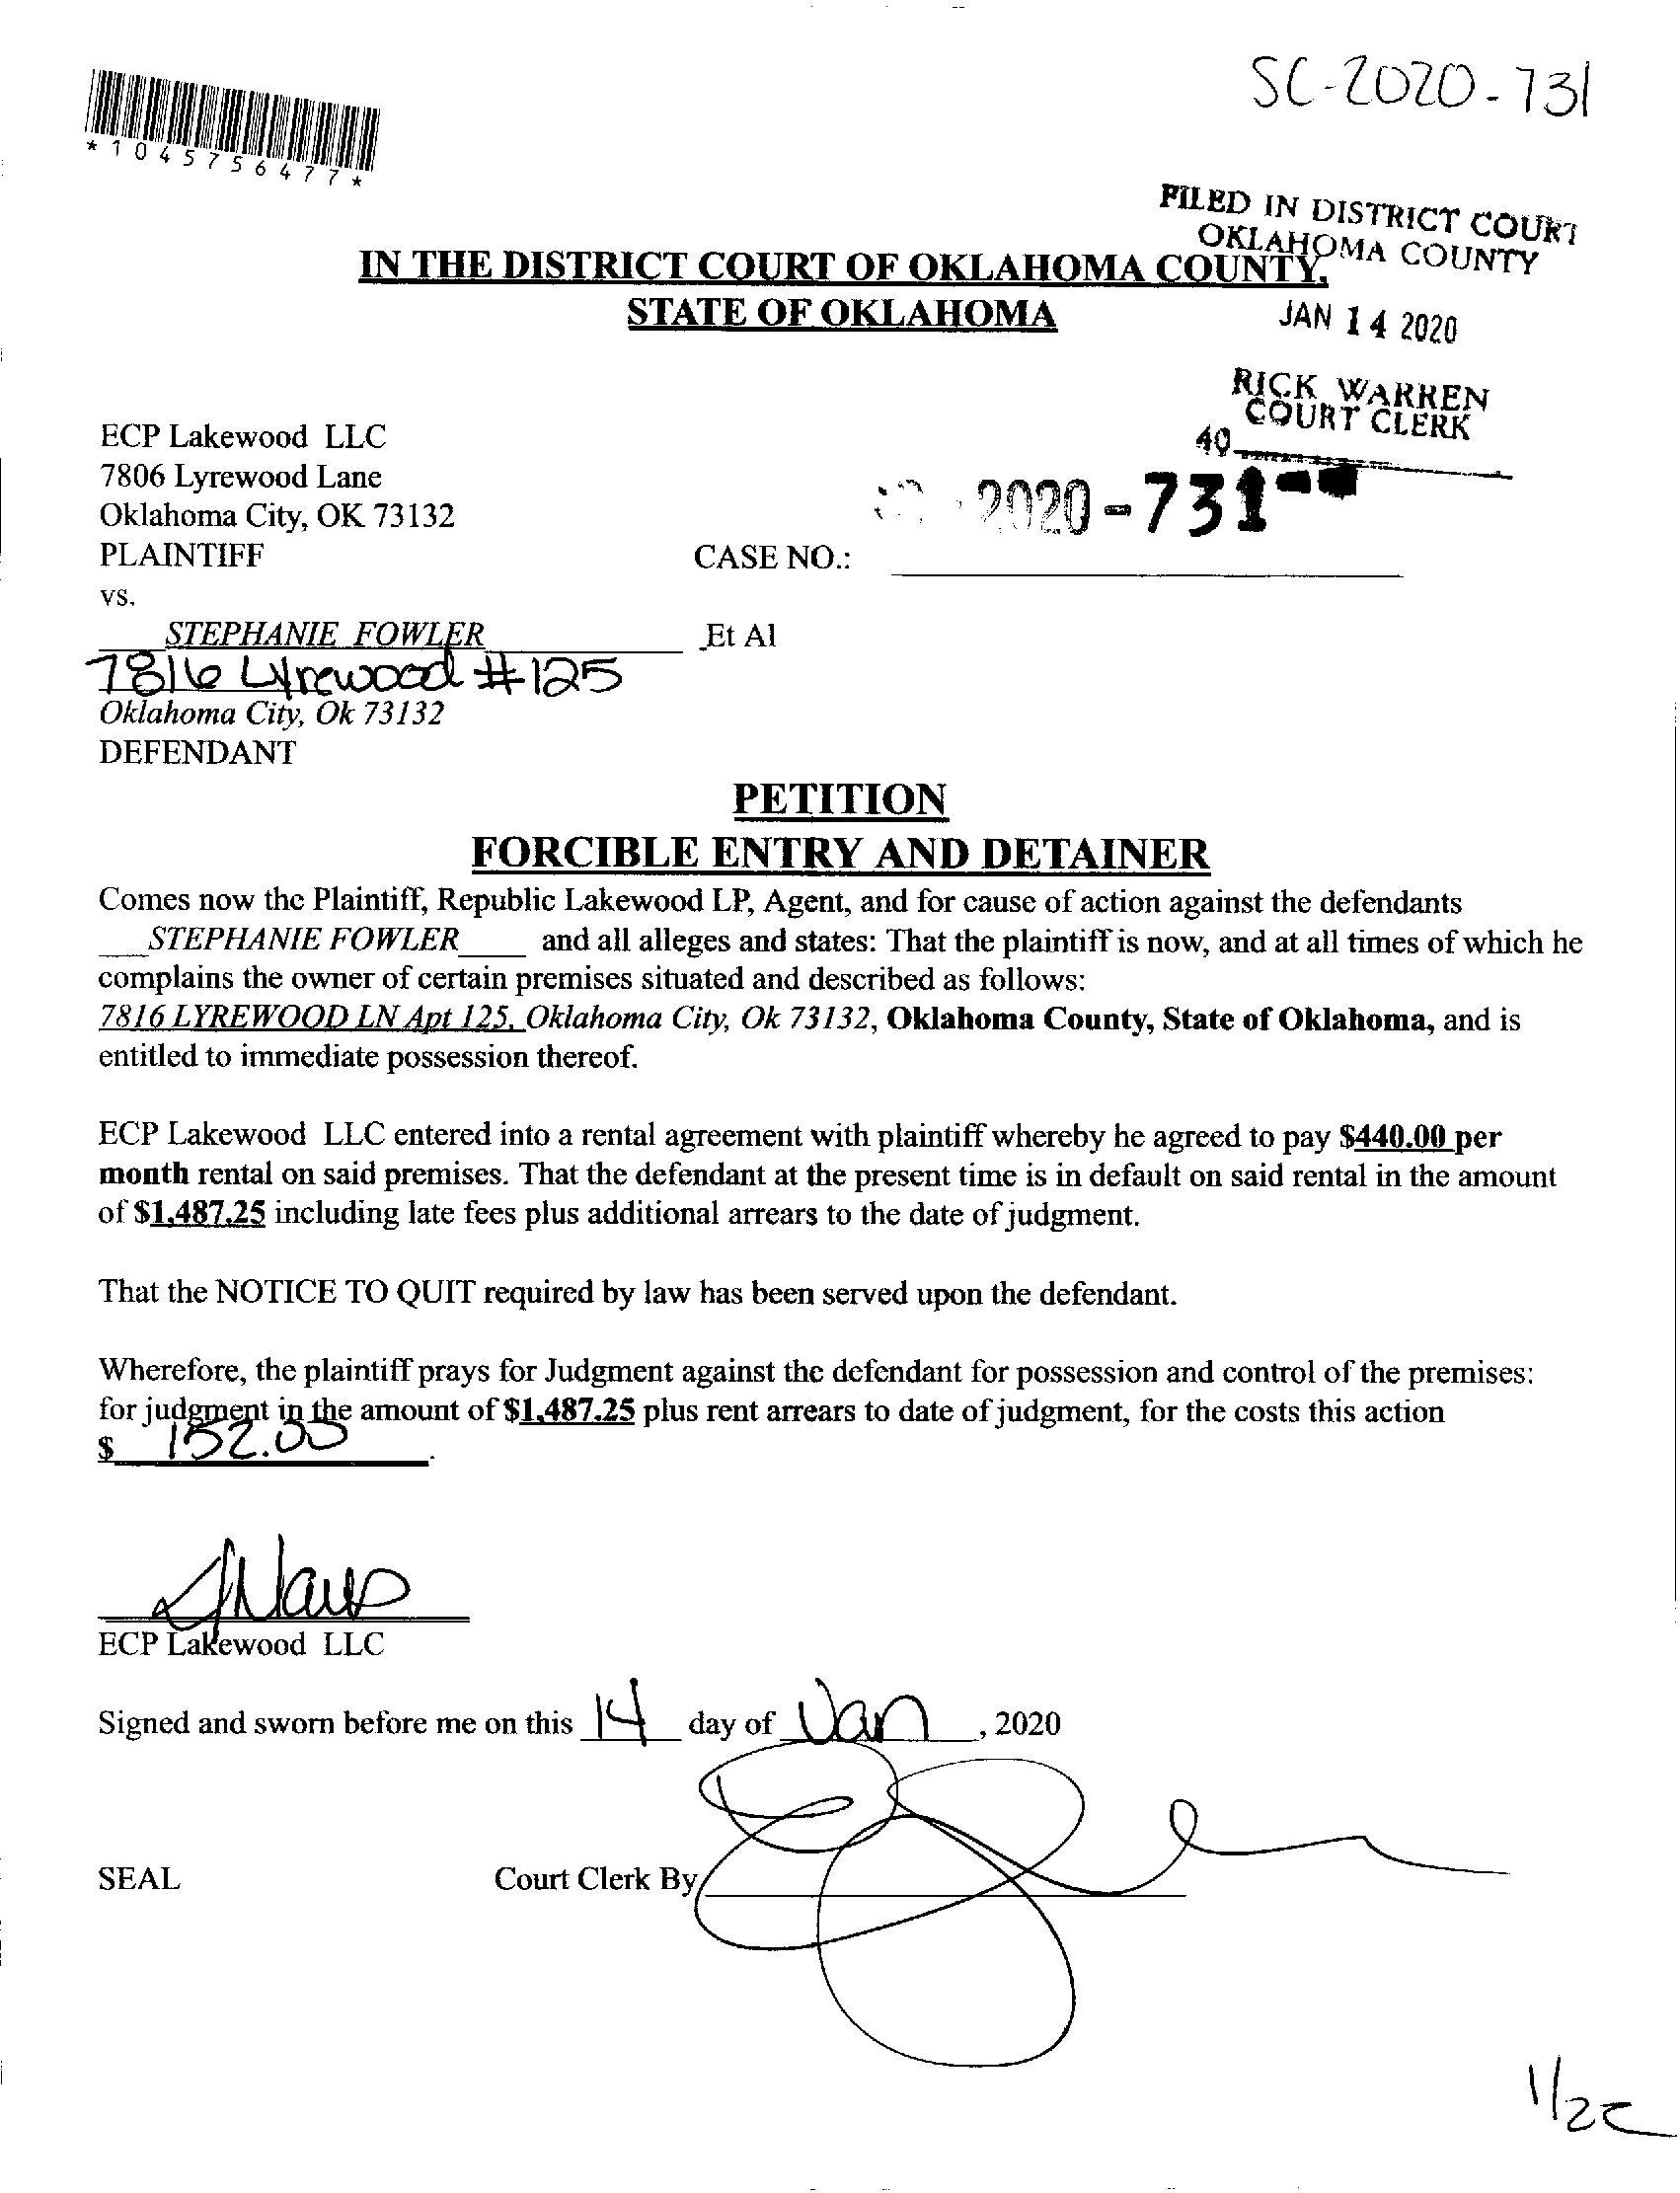 SC-2020-731
*1045756477*
FILED IN DISTRICT COURT
OKLAHOMA COUNTY
IN THE DISTRICT COURT OF OKLAHOMA COUNTY,
STATE OF OKLAHOMA
JAN 14 2020
RICK WARREN
COURT CLERK
40
ECP Lakewood LLC
7806 Lyrewood Lane
Oklahoma City, OK 73132
2020-731--
PLAINTIFF
CASE NO.:
vs.
STEPHANIE FOWLER Et Al
7816 Lyrewood #125
Oklahoma City, Ok 73132
DEFENDANT
PETITION
FORCIBLE ENTRY AND DETAINER
Comes now the Plaintiff, Republic Lakewood LP, Agent, and for cause of action against the defendants
STEPHANIE FOWLER and all alleges and states: That the plaintiff is now, and at all times of which he
complains the owner of certain premises situated and described as follows:
7816 LYREWOOD LN Apt 125, Oklahoma City, Ok 73132, Oklahoma County, State of Oklahoma, and is
entitled to immediate possession thereof.
ECP Lakewood LLC entered into a rental agreement with plaintiff whereby he agreed to pay $440.00 per
month rental on said premises. That the defendant at the present time is in default on said rental in the amount
of $1,487.25 including late fees plus additional arrears to the date of judgment.
That the NOTICE TO QUIT required by law has been served upon the defendant.
Wherefore, the plaintiff prays for Judgment against the defendant for possession and control of the premises:
for judgment in the amount of $1,487.25 plus rent arrears to date of judgment, for the costs this action
$ 152.00.
ECP Lakewood LLC
Signed and sworn before me on this 14 day of Jan, 2020
SEAL
Court Clerk By